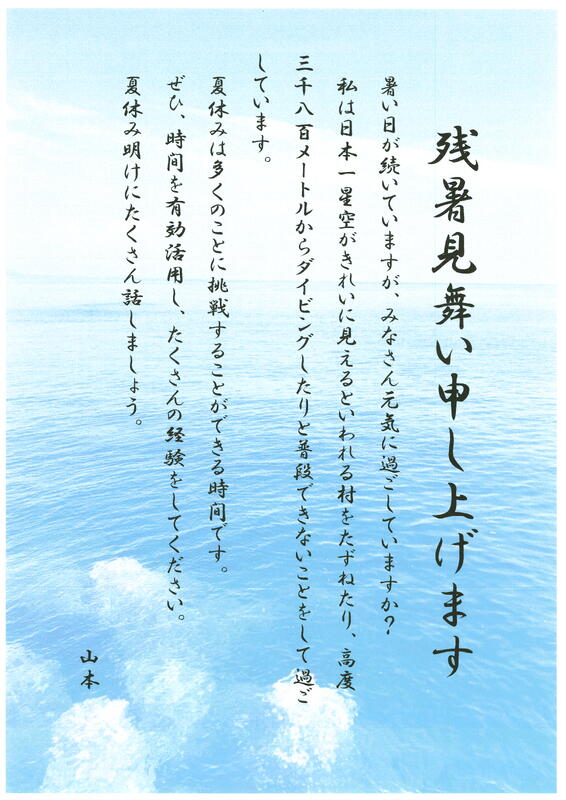 残暑見舞い申し上げます
暑い日が続いていますが、みなさん元気に過ごしていますか？
私は日本一星空がきれいに見えるといわれる村をたずねたり、高度
三千八百メートルからダイビングしたりと普段できないことをして過ご
しています。
夏休みは多くのことに挑戦することができる時間です。
ぜひ、時間を有効活用し、たくさんの経験をしてください。
夏休み明けにたくさん話しましょう。
山本